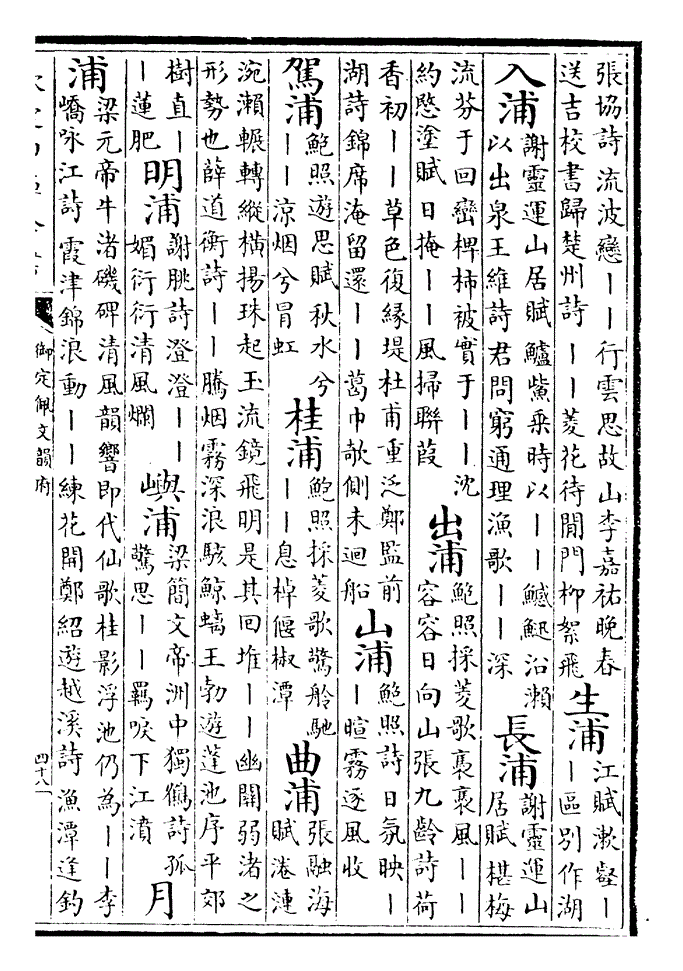 張協詩流波戀丨丨行雲思故山李嘉祐晚春
送吉校書歸楚州詩丨丨菱花待閒門柳絮飛
生浦
江賦漱壑丨
丨區别作湖
入浦
謝靈運山居賦鱸鮆乗時以丨丨鱤沿瀨
以出泉王維詩君問窮通理漁歌丨丨深
長浦
謝靈運山
居賦椹梅
流芬于回巒椑柿被實于丨丨沈
約愍塗賦日掩丨丨風掃聯葭
出浦
鮑照採菱歌裹裹風丨丨
容容日向山張九齡詩荷
香初丨丨草色復縁堤杜甫重泛鄭監前
湖詩錦席淹留還丨丨葛巾欹側未迴船
山浦
鮑照詩日氛映丨
丨暄霧逐風收
駕浦
鮑照遊思賦秋水兮
丨丨涼烟兮冒虹
桂浦
鮑照採菱歌驚舲馳
丨丨息棹偃椒潭
曲浦
張融海
賦淃漣
涴瀨輾轉縱横揚珠起玉流鏡飛明是其回堆丨丨幽關弱渚之
形勢也薛道衡詩丨丨騰烟霧深浪駭鯨螭王勃遊蓬池序平郊
樹直丨
丨蓮肥
明浦
謝朓詩澄澄丨丨
媚衍衍清風爛
嶼浦
梁簡文帝洲中獨鶴詩孤
驚思丨丨羈唳下江濆
月
浦
梁元帝牛渚磯碑清風韻響即代仙歌桂影浮池仍為丨丨李
嶠咏江詩霞津錦浪動丨丨練花開鄭紹遊越溪詩漁潭逢釣
御定佩文韻府
四十八